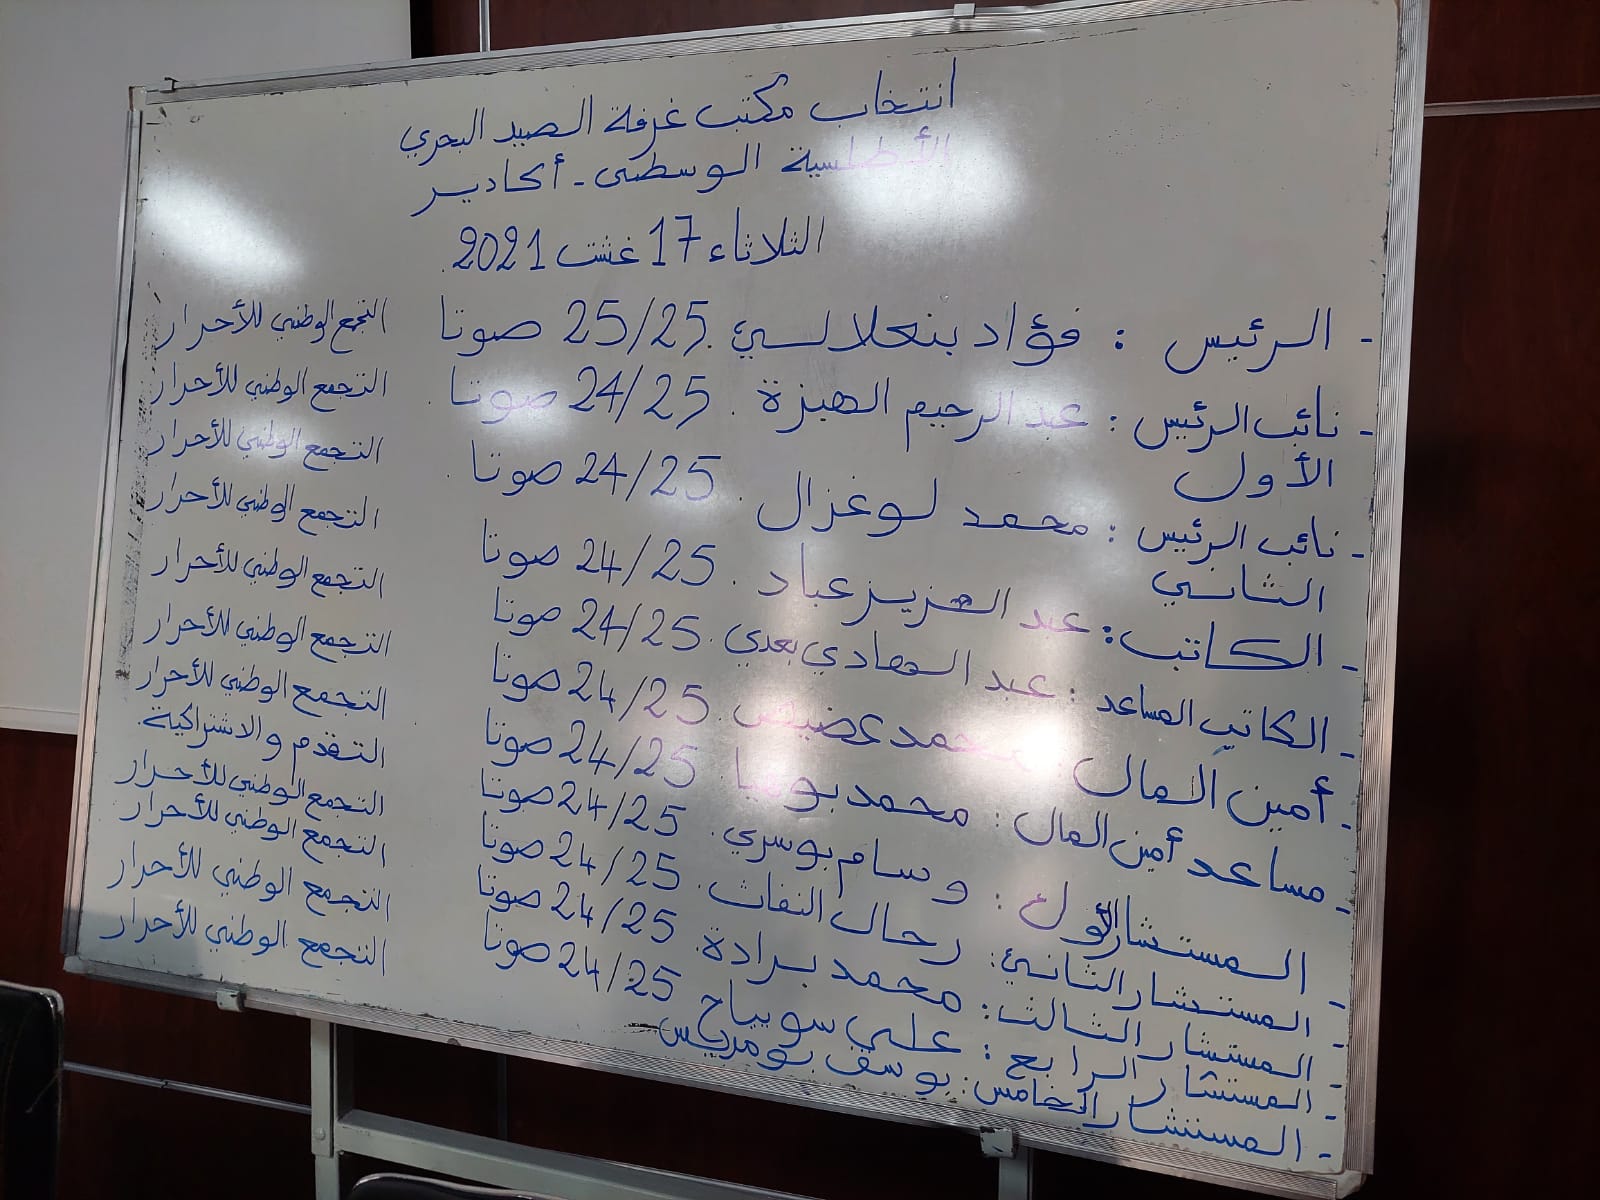 انتخاب مكتب غرفة الصيد البحري
الأطلسية الوسطى - أكادير
الثلاثاء 17 غشت 2021
- الرئيس : فؤاد بنعلالي . 25/25 صوتا التجمع الوطني للأحرار
- نائب الرئيس : عبد الرحيم الهبزة . 24/25 صوتا التجمع الوطني للأحرار
الأول
- نائب الرئيس : محمد لوغزال . 24/25 صوتا التجمع الوطني للأحرار
الثاني
- الكاتب : عبد العزيز عباد . 24/25 صوتا التجمع الوطني للأحرار
- الكاتب المساعد : عبد الهادي بعدي . 24/25 صوتا التجمع الوطني للأحرار
- أمين المال : محمد عضيض 24/25 صوتا التجمع الوطني للأحرار
- مساعد أمين المال : محمد 24/25 صوتا التجمع الوطني للأحرار
- المستشار الأول : وسام بوسري . 24/25 صوتا التقدم والاشتراكية .
- المستشار الثاني : رحال النفاث . 24/25 صوتا التجمع الوطني للأحرار
- المستشار الثالث : محمد برادة . 24/25 صوتا التجمع الوطني للأحرار
- المستشار الرابع : علي سويباح 24/25 صوتا التجمع الوطني للأحرار
- المستشار الخامس : يوسف بومريس التجمع الوطني للأحرار